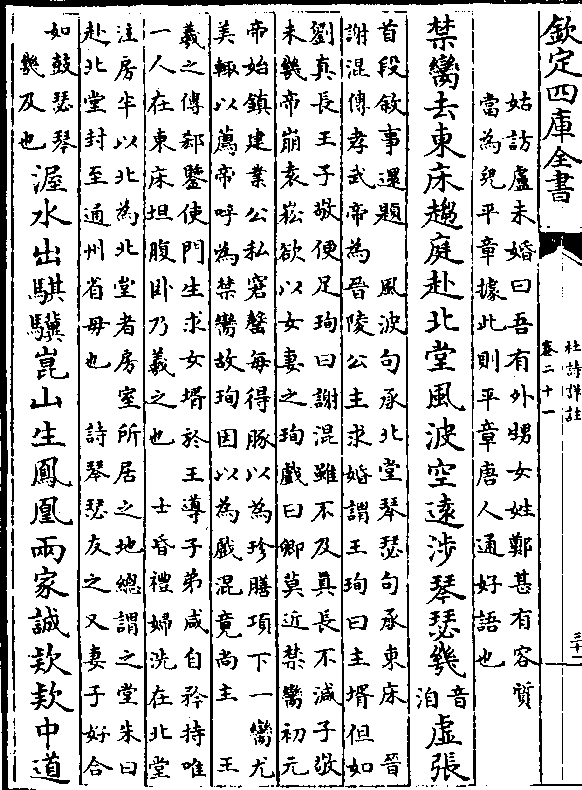 欽定四庫全書
杜詩詳註
卷二十一
三十
姑訪盧未婚曰吾有外甥女姓鄭甚有容質
當為兒平章據此則平章唐人通好語也
禁臠去東床趨庭赴北堂風波空遠涉琴瑟幾音泊虛張
首段敘事還題 風波句承北堂琴瑟句承東床 晉
謝混傳孝武帝為晉陵公主求婚謂王珣曰主壻但如
劉真長王子敬便足珣曰謝混雖不及真長不減子敬
未幾帝崩袁崧欲以女妻之珣戲曰卿莫近禁臠初元
帝始鎮建業公私窘罄每得豚以為珍膳項下一臠尤
美輒以薦帝呼為禁臠故珣因以為戲混竟尚主 王
羲之傳郄鑒使門生求女壻於王導子弟咸自矜持唯
一人在東床坦腹卧乃羲之也 士昏禮婦洗在北堂
注房半以北為北堂者房室所居之地總謂之堂朱曰
赴北堂封至通州省母也 詩琴瑟友之又妻子好合
如鼓瑟琴
幾及也
渥水出騏驥崑山生鳳凰兩家誠欵欵中道